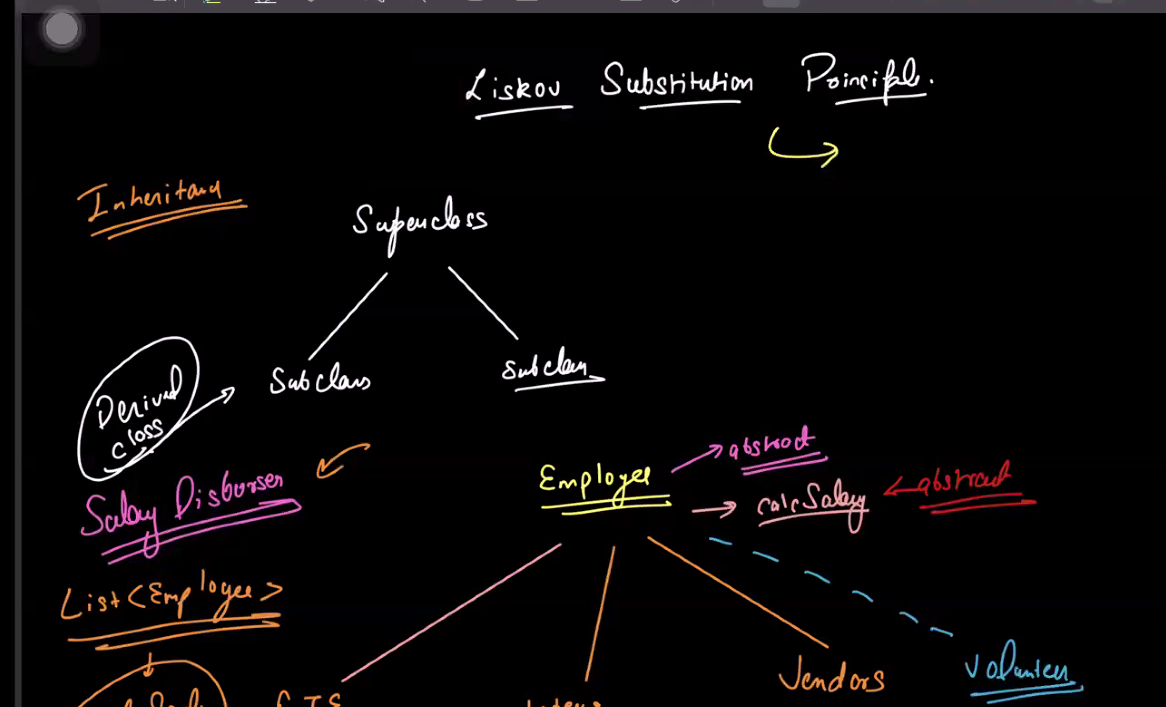 Liskov Substitution Principle.
Inheritance
Superclass
Subclass
Subclass
Derived
class
Salary Disburser
Employee
abstract
calcSalary
abstract
List<Employee>
Vendors
Volunteer